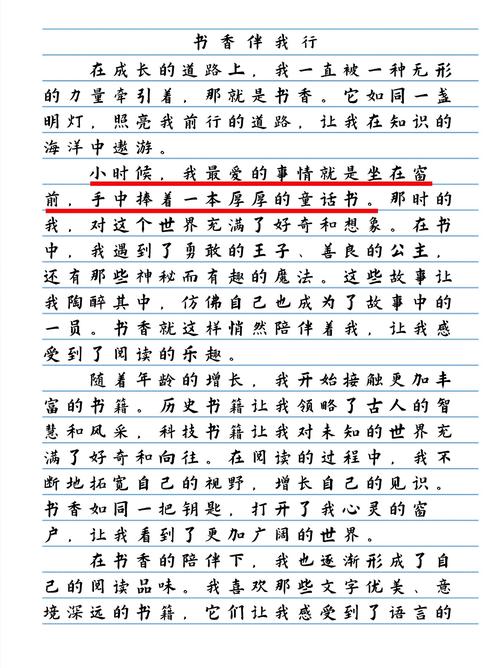 书香伴我行
在成长的道路上，我一直被一种无形
的力量牵引着，那就是书香。它如同一盏
明灯，照亮我前行的道路，让我在知识的
海洋中遨游。
小时候，我最爱的事情就是坐在窗
前，手中捧着一本厚厚的童话书。那时的
我，对这个世界充满了好奇和想象。在书
中，我遇到了勇敢的王子、善良的公主，
还有那些神秘而有趣的魔法。这些故事让
我陶醉其中，仿佛自己也成为了故事中的
一员。书香就这样悄然陪伴着我，让我感
受到了阅读的乐趣。
随着年龄的增长，我开始接触更加丰
富的书籍。历史书籍让我领略了古人的智
慧和风采，科技书籍让我对未知的世界充
满了好奇和向往。在阅读的过程中，我不
断地拓宽自己的视野，增长自己的见识。
书香如同一把钥匙，打开了我心灵的窗
户，让我看到了更加广阔的世界。
在书香的陪伴下，我也逐渐形成了自
己的阅读品味。我喜欢那些文字优美、意
境深远的书籍，它们让我感受到了语言的